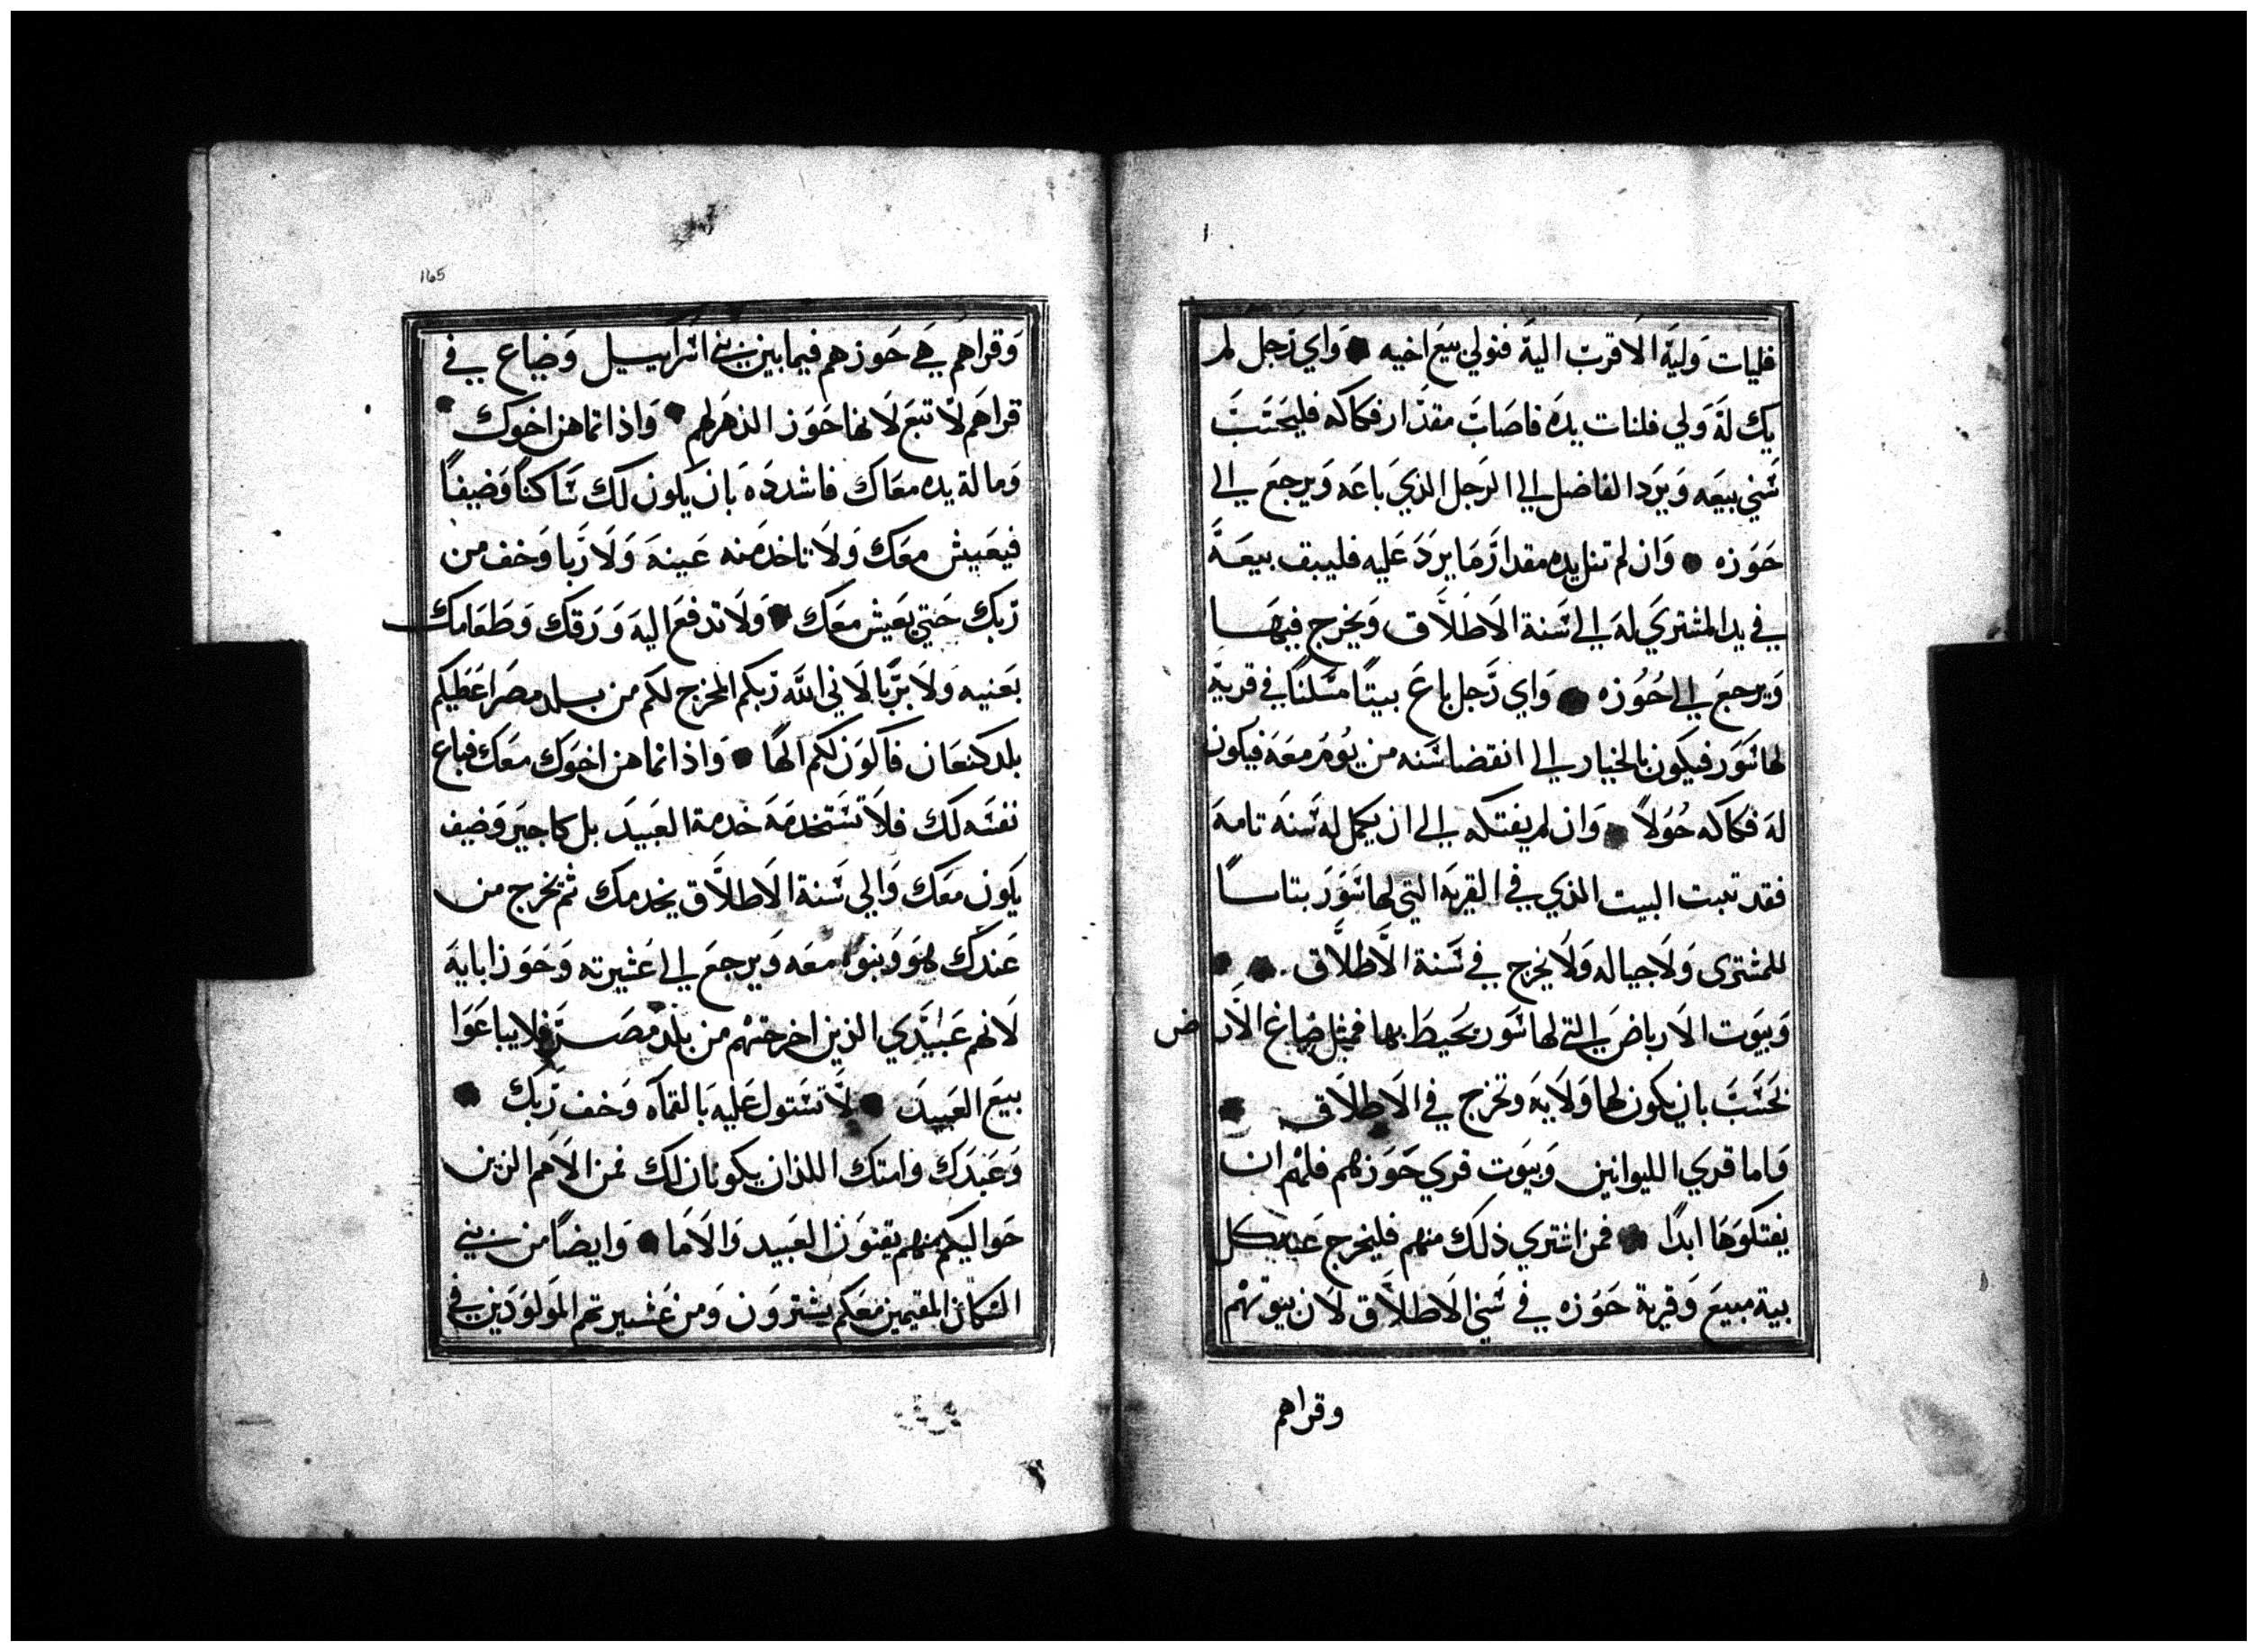 فليات وليه الاقرب اليه فتولي بيع اخيه ● واي رجل لم
يك له ولي فلنات يده فاصاب مقدار فكاكه فليحتسب
سني بيعه ويرد الفاضل الي الرجل الذي باعه ويرجع الي
حوزه ● وان لم تنل يده مقدار ما يرد عليه فليبق بيعه
في يد المشتري له الي سنة الاطلاق ويخرج فيها
ويرجع الي حوزه ● واي رجل باع بيتًا مسكنًا في قرية
لها سور فيكون بالخيار الي انقضا سنه من يوم معه فيكون
له فكاكه حولاً ● وان لم يفتكه الي ان يكمل له سنه تامه
فقد تبت البيت الذي في القريه التي لها سور بتاسا
للمشتري ولاجياله ولا يخرج في سنة الاطلاق ● ●
وبيوت الارباض التي لها سور يحيط بها فمثل ضياع الارض
تحسب بان يكون لها ولايه وتخرج في الاطلاق ●
واما قري الليوانين وبيوت قري حوزهم فلهم ان
يفتكوها ابدًا ● فمن اشتري ذلك منهم فليخرج عنه كل
بية مبيع وقرية حوزه في سني الاطلاق لان بيوتهم
وقراهم
165
وقراهم هي حوزهم فيما بين بني اسراييل وضياع في
قراهم لا تبع لانها حوز الدهر لهم ● واذا تماهن اخوك ●
وما لة يده معاك فاشدده بان يكون لك ساكنًا وضيفًا
فيعيش معك ولا تاخد منه عينه ولا ربا وخف من
ربك حتي يعيش معك ● ولا تدفع اليه ورقك وطعامك
بعنيه ولا بربا لاني الله ربكم المخرج لكم من بلد مصر اعطيكم
بلد كنعان فاكون لكم الهًا ● واذا تماهن اخوك معك فباع
نفسه لك فلا تستخدمه خدمة العبيد بل كاجير وضيف
يكون معك والي سنة الاطلاق يخدمك ثم يخرج من
عندك هو وبنوه معه ويرجع الي عشيرته وحوز ابايه
لانهم عبيدي الذين اخرجتهم من بلد مصر فلا يباعوا
بيع العبيد ● لا تستول عليه بالقماه وخف ربك ●
وعبدك وامتك اللذان يكونان لك فمن الامم الذين
حواليكم منهم يقنون العبيد والاما ● وايضًا من بني
السكان المقيمين معكم يشترون ومن عشيرتهم المولودين في